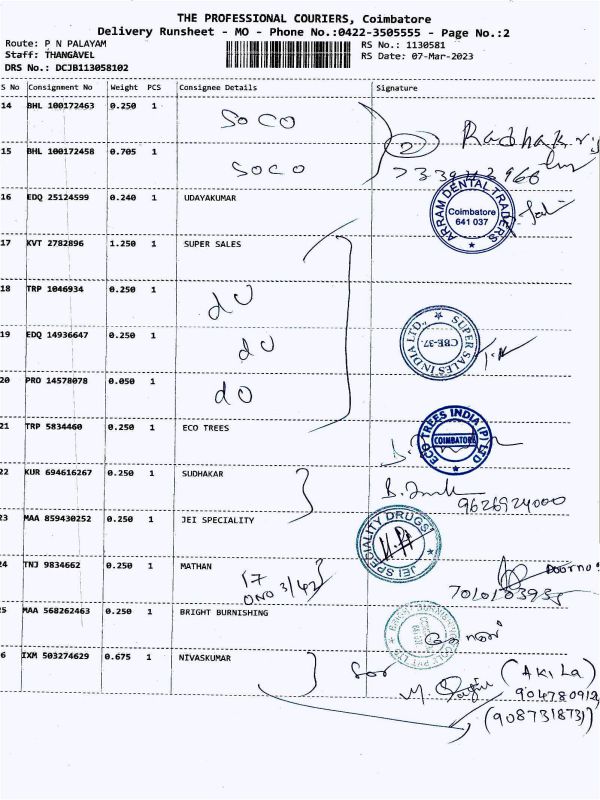 THE PROFESSIONAL COURIERS, Coimbatore
Delivery Runsheet - MO - Phone No.:0422-3505555 - Page No.:2
Route: P N PALAYAM
RS No.: 1130581
Staff: THANGAVEL
RS Date: 07-Mar-2023
DRS No.: DCJB113058102
S No Consignment No Weight PCS Consignee Details Signature
14 BHL 100172463 0.250 1 SOCO
2
15 BHL 100172458 0.705 1 SOCO
16 EDQ 25124599 0.240 1 UDAYAKUMAR
ARRAM DENTAL TRADERS
Coimbatore
641 037
17 KVT 2782896 1.250 1 SUPER SALES
18 TRP 1046934 0.250 1 do
19 EDQ 14936647 0.250 1 do
SUPER SALES INDIA LTD.,
CBE-37.
20 PRO 14578078 0.050 1 do
21 TRP 5834460 0.250 1 ECO TREES
ECO TREES INDIA (P) LTD
COIMBATORE
22 KUR 694616267 0.250 1 SUDHAKAR
9626924000
23 MAA 859430252 0.250 1 JEI SPECIALITY
JEI SPECIALITY DRUGS
24 TNJ 9834662 0.250 1 MATHAN
17
ONO 3/42
25 MAA 568262463 0.250 1 BRIGHT BURNISHING
6 IXM 503274629 0.675 1 NIVASKUMAR
(AKILA)
904780912
(908731873)